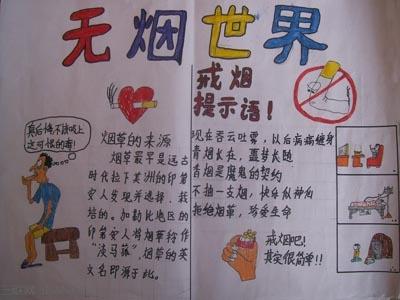 无烟世界
真后悔不该吸上
这可恨的毒!
烟草的来源
烟草最早是远古
时代拉丁美洲的印第
安人发现并选择、栽
培的。加勒比地区的
印第安人将烟草称作
“淡马菰”。烟草的英
文名即源于此。
戒烟
提示语!
现在吞云吐雾,以后病痛缠身
青烟长在,噩梦长随
青烟是魔鬼的契约
不抽一支烟,快乐似神仙
拒绝烟草,珍爱生命
戒烟吧!
其实很简单!!